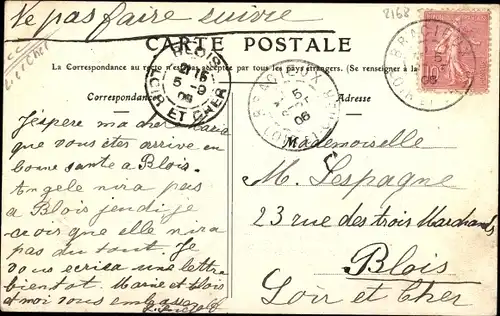 Ne pas faire suivre
2168
CARTE POSTALE
La Correspondance au recto n'est pas acceptée par tous les pays étrangers. (Se renseigner à la
Correspondance
Adresse
BLOIS
21 15
5 -9
06
LOIR ET CHER
BRACIEUX
5
06
BRACIEUX
5
06
10
J'espère ma chère Maria
que vous êtes arrivé en
bonne santé a Blois.
Angele nira pas
a Blois jeudi je
crois que elle nira
pas du tout. Je
vous ecrirai une lettre
bientot. Marie et
et moi vous embrasse
Mademoiselle
M. Lespagne
23 rue des trois Marchands
Blois
Loir et Cher